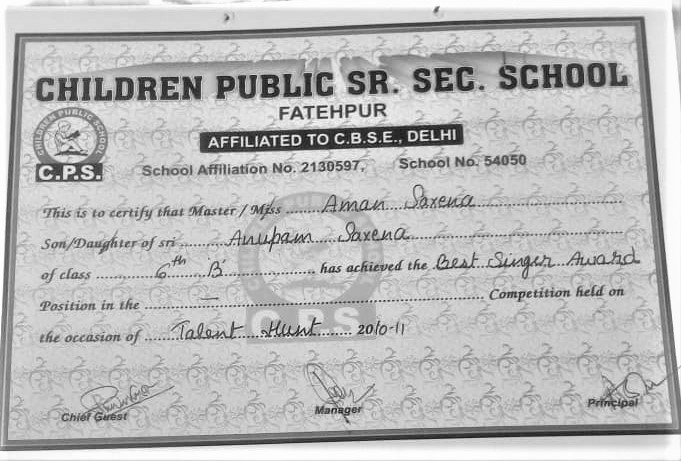 CHILDREN PUBLIC SR. SEC. SCHOOL
FATEHPUR
AFFILIATED TO C.B.S.E., DELHI
CHILDREN PUBLIC SCHOOL
C.P.S.
School Affiliation No. 2130597, School No. 54050
This is to certify that Master / Miss Aman Saxena
Son/Daughter of sri Anupam Saxena
of class 6th 'B' has achieved the Best Singer Award
Position in the — Competition held on
the occasion of Talent Hunt 2010-11
C.P.S
Chief Guest Manager Principal